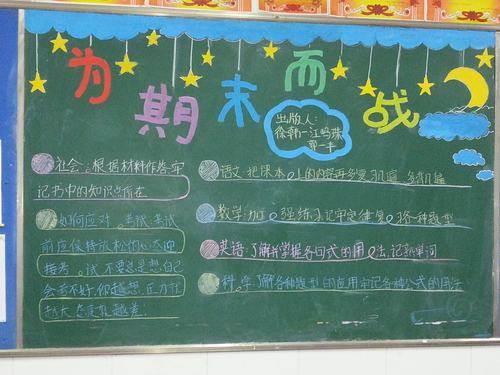 为期末而战
出版人:
徐韩一江鸣珠
郭一丰
社会:根据材料作答,牢
记书中的知识点所在
如何应对 考试:考试
前应保持放松的心态迎
接考 试,不要总是想自己
会考不好,你越想,压力社
越大 态度就越差.
语文:把课本 上的内容再多复习几遍 多读几篇
数学:加 强练习,记牢定律 复习各种题型
英语:了解并掌握各句式的用 法,记熟单词
科 学:了解各种题型的应用,牢记各种公式的用法